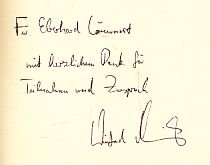 Für Eberhard Lämmert
mit herzlichem Dank für
Teilnahme und Zuspruch